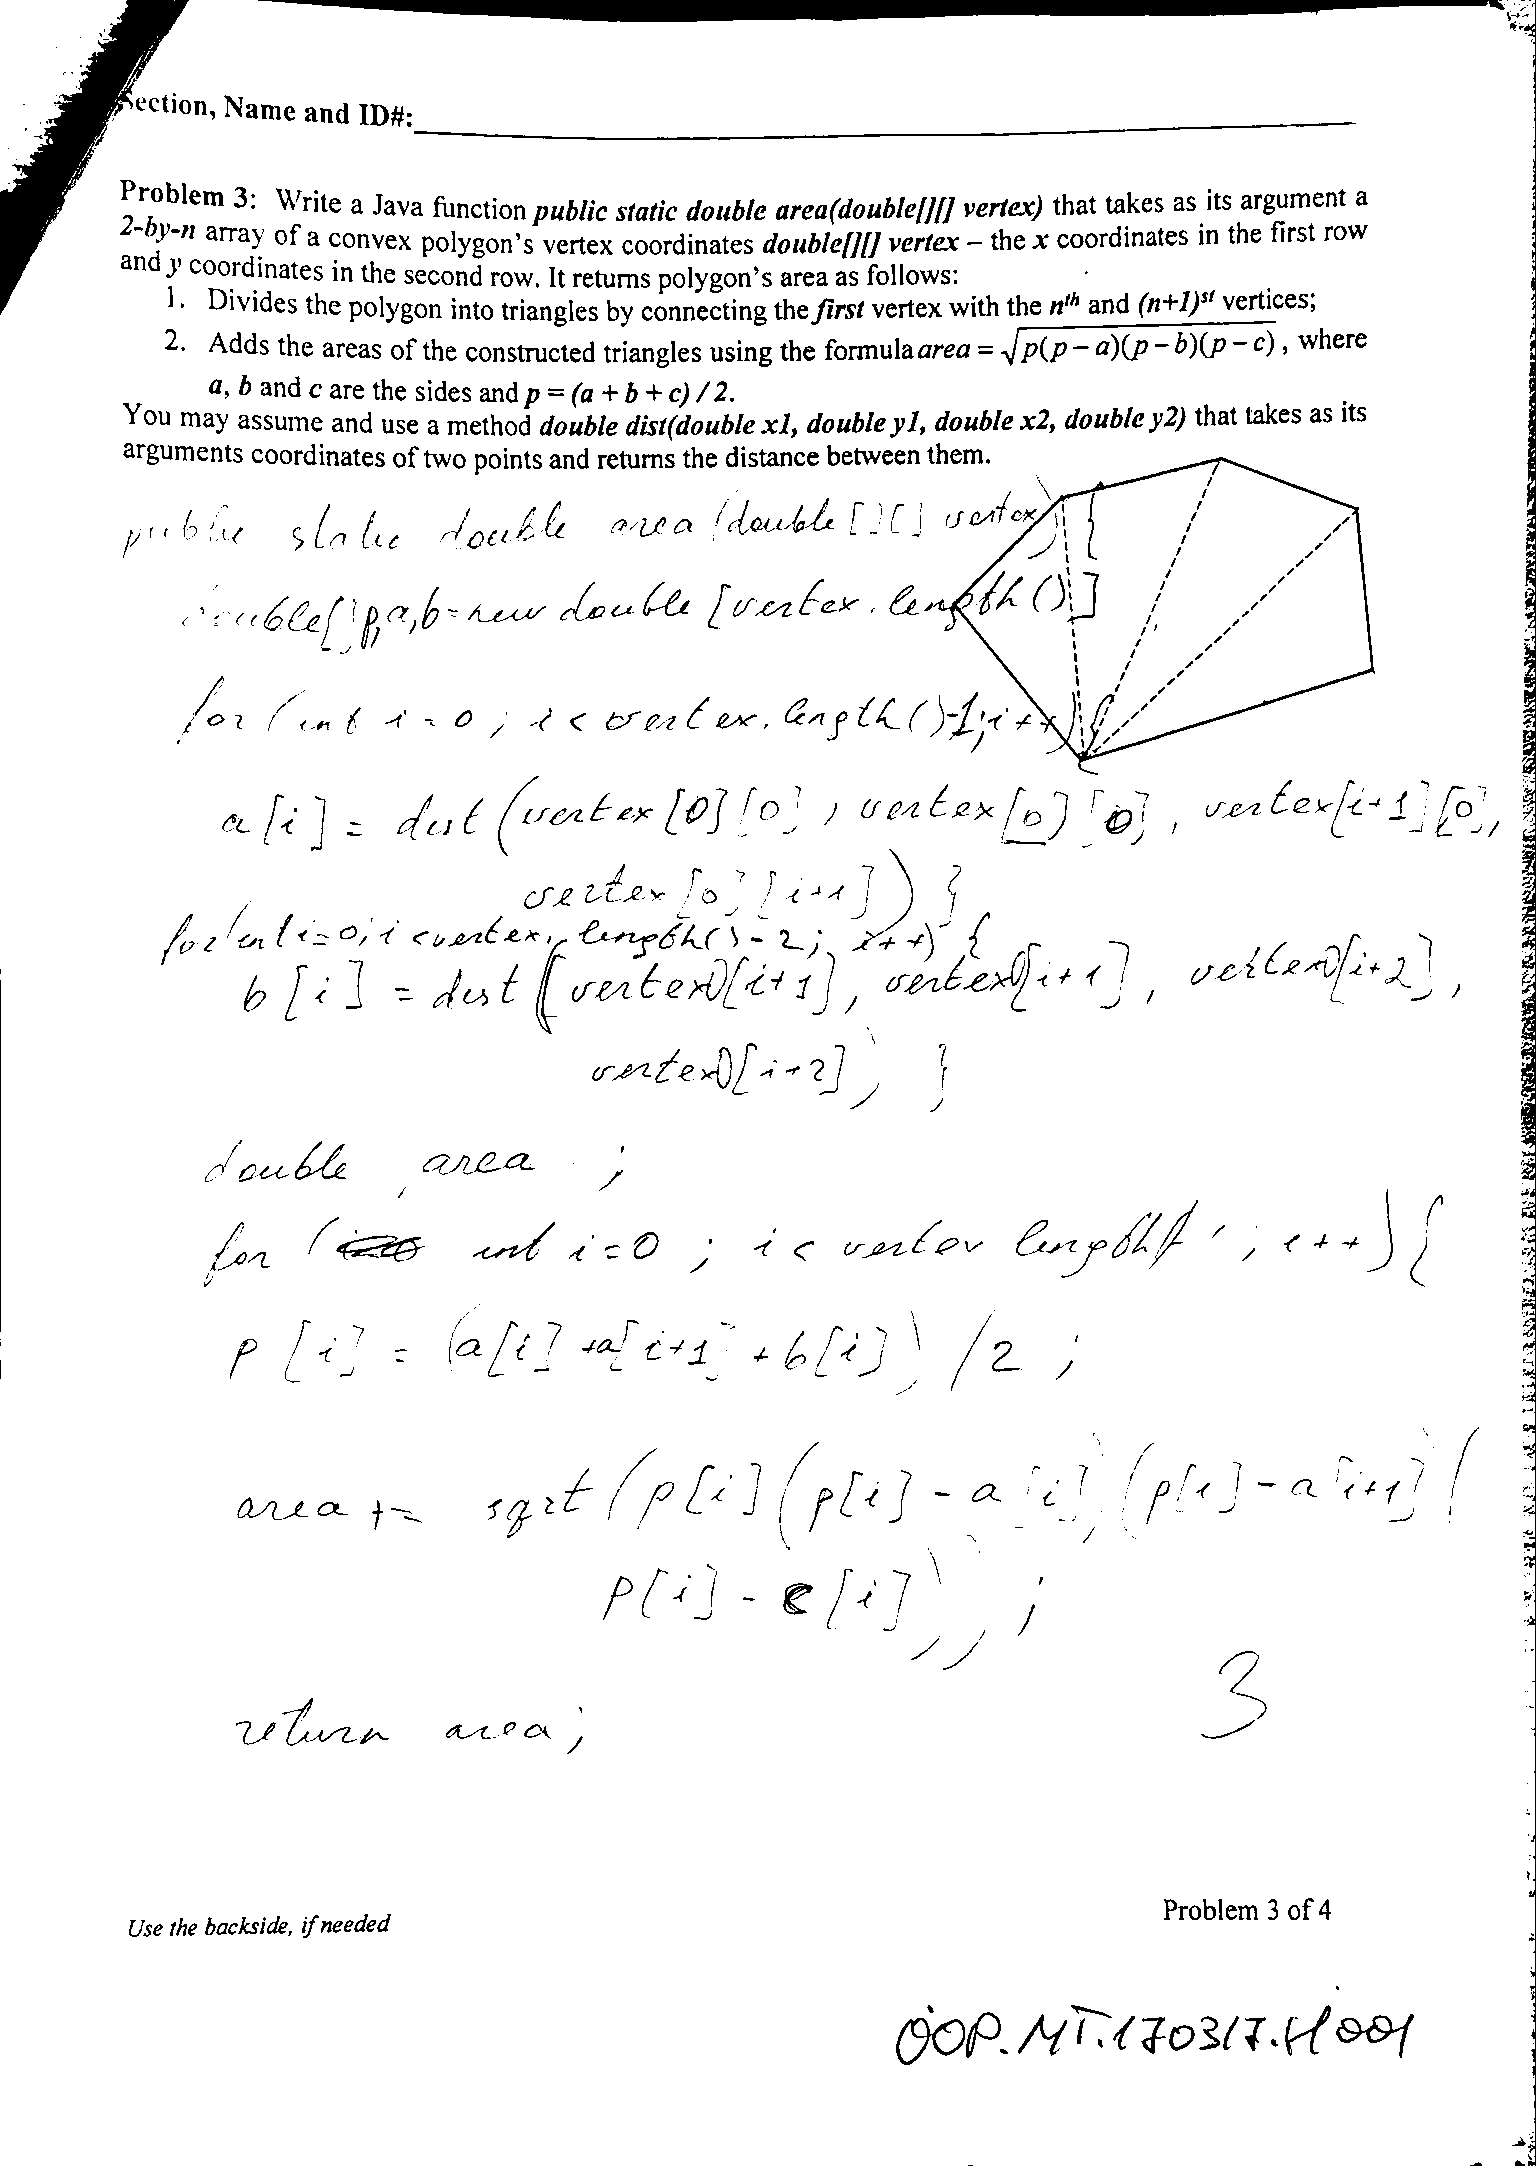 Section, Name and ID#:
Problem 3: Write a Java function public static double area(double[][] vertex) that takes as its argument a
2-by-n array of a convex polygon's vertex coordinates double[][] vertex – the x coordinates in the first row
and y coordinates in the second row. It returns polygon's area as follows:
1. Divides the polygon into triangles by connecting the first vertex with the nth and (n+1)st vertices;
2. Adds the areas of the constructed triangles using the formula area = √p(p – a)(p – b)(p – c), where
a, b and c are the sides and p = (a + b + c) / 2.
You may assume and use a method double dist(double x1, double y1, double x2, double y2) that takes as its
arguments coordinates of two points and returns the distance between them.
public static double area (double [][] vertex) {
double[] p,a,b=new double [vertex.length()]
for (int i=0; i<vertex.length()-1; i++) {
a[i] = dist (vertex [0][0], vertex [0][0], vertex[i+1][0],
vertex [0][i+1]) }
for(int i=0; i<vertex.length()-2; i++) {
b[i] = dist (vertex0[i+1], vertex0[i+1], vertex0[i+2],
vertex0[i+2]) }
double area ;
for ( int i=0 ; i< vertex length ; i++) {
p [i] = (a[i] +a[i+1] + b[i]) /2 ;
area += sqrt (p[i] (p[i] - a[i]) (p[i] - a[i+1]) (
p[i] - c[i])) ;
return area;
3
Use the backside, if needed
Problem 3 of 4
OOP.MT.170317.H001